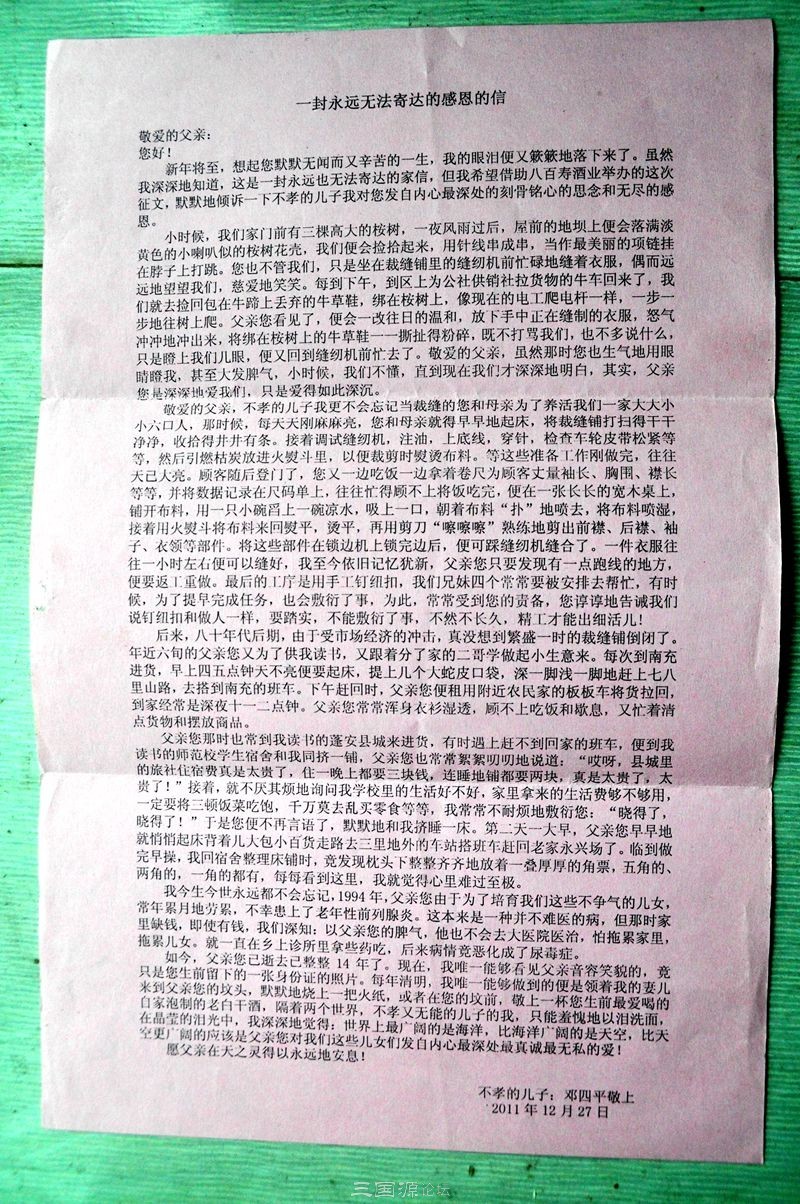 一封永远无法寄达的感恩的信
敬爱的父亲：
您好！
新年将至，想起您默默无闻而又辛苦的一生，我的眼泪便又簌簌地落下来了。虽然
我深深地知道，这是一封永远也无法寄达的家信，但我希望借助八百寿酒业举办的这次
征文，默默地倾诉一下不孝的儿子我对您发自内心最深处的刻骨铭心的思念和无尽的感
恩。
小时候，我们家门前有三棵高大的桉树，一夜风雨过后，屋前的地坝上便会落满淡
黄色的小喇叭似的桉树花壳，我们便会捡拾起来，用针线串成串，当作最美丽的项链挂
在脖子上打跳。您也不管我们，只是坐在裁缝铺里的缝纫机前忙碌地缝着衣服，偶而远
远地望望我们，慈爱地笑笑。每到下午，到区上为公社供销社拉货物的牛车回来了，我
们就去捡回包在牛蹄上丢弃的牛草鞋，绑在桉树上，像现在的电工爬电杆一样，一步一
步地往树上爬。父亲您看见了，便会一改往日的温和，放下手中正在缝制的衣服，怒气
冲冲地冲出来，将绑在桉树上的牛草鞋一一撕扯得粉碎，既不打骂我们，也不多说什么，
只是瞪上我们几眼，便又回到缝纫机前忙去了。敬爱的父亲，虽然那时您也生气地用眼
睛瞪我，甚至大发脾气，小时候，我们不懂，直到现在我们才深深地明白，其实，父亲
您是深深地爱我们，只是爱得如此深沉。
敬爱的父亲，不孝的儿子我更不会忘记当裁缝的您和母亲为了养活我们一家大大小
小六口人，那时候，每天天刚麻麻亮，您和母亲就得早早地起床，将裁缝铺打扫得干干
净净，收拾得井井有条。接着调试缝纫机，注油，上底线，穿针，检查车轮皮带松紧等
等，然后引燃枯炭放进火熨斗里，以便裁剪时熨烫布料。等这些准备工作刚做完，往往
天已大亮。顾客随后登门了，您又一边吃饭一边拿着卷尺为顾客丈量袖长、胸围、襟长
等等，并将数据记录在尺码单上，往往忙得顾不上将饭吃完，便在一张长长的宽木桌上，
铺开布料，用一只小碗舀上一碗凉水，吸上一口，朝着布料“扑”地喷去，将布料喷湿，
接着用火熨斗将布料来回熨平，烫平，再用剪刀“嚓嚓嚓”熟练地剪出前襟、后襟、袖
子、衣领等部件。将这些部件在锁边机上锁完边后，便可踩缝纫机缝合了。一件衣服往
往一小时左右便可以缝好，我至今依旧记忆犹新，父亲您只要发现有一点跑线的地方，
便要返工重做。最后的工序是用手工钉纽扣，我们兄妹四个常常要被安排去帮忙，有时
候，为了提早完成任务，也会敷衍了事，为此，常常受到您的责备，您谆谆地告诫我们
说钉纽扣和做人一样，要踏实，不能敷衍了事，不然不长久，精工才能出细活儿！
后来，八十年代后期，由于受市场经济的冲击，真没想到繁盛一时的裁缝铺倒闭了。
年近六旬的父亲您又为了供我读书，又跟着分了家的二哥学做起小生意来。每次到南充
进货，早上四五点钟天不亮便要起床，提上几个大蛇皮口袋，深一脚浅一脚地赶上七八
里山路，去搭到南充的班车。下午赶回时，父亲您便租用附近农民家的板板车将货拉回，
到家经常是深夜十一二点钟。父亲您常常浑身衣衫湿透，顾不上吃饭和歇息，又忙着清
点货物和摆放商品。
父亲您那时也常到我读书的蓬安县城来进货，有时遇上赶不到回家的班车，便到我
读书的师范校学生宿舍和我同挤一铺，父亲您也常常絮絮叨叨地说道：“哎呀，县城里
的旅社住宿费真是太贵了，住一晚上都要三块钱，连睡地铺都要两块，真是太贵了，太
贵了！”接着，就不厌其烦地询问我学校里的生活好不好，家里拿来的生活费够不够用，
一定要将三顿饭菜吃饱，千万莫去乱买零食等等，我常常不耐烦地敷衍您：“晓得了，
晓得了！”于是您便不再言语了，默默地和我挤睡一床。第二天一大早，父亲您早早地
就悄悄起床背着几大包小百货走路去三里地外的车站搭班车赶回老家永兴场了。临到做
完早操，我回宿舍整理床铺时，竟发现枕头下整整齐齐地放着一叠厚厚的角票，五角的、
两角的，一角的都有，每每看到这里，我就觉得心里难过至极。
我今生今世永远都不会忘记，1994 年，父亲您由于为了培育我们这些不争气的儿女，
常年累月地劳累，不幸患上了老年性前列腺炎。这本来是一种并不难医的病，但那时家
里缺钱，即使有钱，我们深知：以父亲您的脾气，他也不会去大医院医治，怕拖累家里，
拖累儿女。就一直在乡上诊所里拿些药吃，后来病情竟恶化成了尿毒症。
如今，父亲您已逝去已整整 14 年了。现在，我唯一能够看见父亲音容笑貌的，竟
只是您生前留下的一张身份证的照片。每年清明，我唯一能够做到的便是领着我的妻儿
来到父亲您的坟头，默默地烧上一把火纸，或者在您的坟前，敬上一杯您生前最爱喝的
自家泡制的老白干酒，隔着两个世界，不孝又无能的儿子的我，只能羞愧地以泪洗面，
在晶莹的泪光中，我深深地觉得：世界上最广阔的是海洋，比海洋广阔的是天空，比天
空更广阔的应该是父亲您对我们这些儿女们发自内心最深处最真诚最无私的爱！
愿父亲在天之灵得以永远地安息！
不孝的儿子：邓四平敬上
2011 年 12 月 27 日
三国源论坛